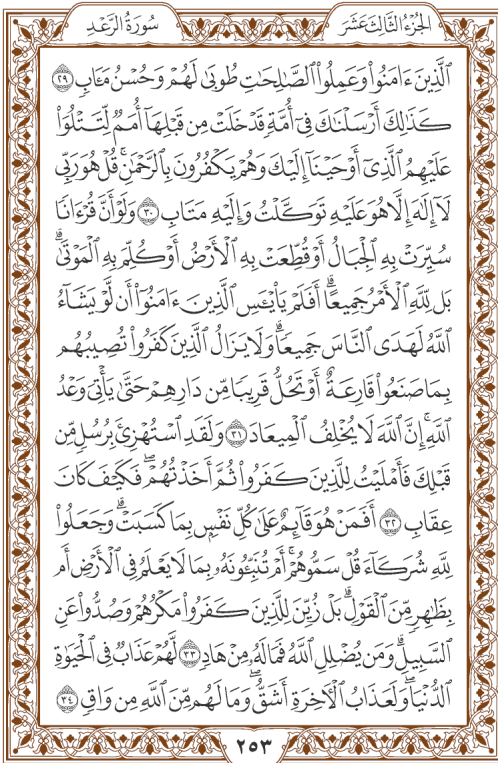 الجُزْءُ الثَّالِثَ عَشَرَ
سُورَةُ الرَّعْدِ
ٱلَّذِينَ ءَامَنُوا۟ وَعَمِلُوا۟ ٱلصَّٰلِحَٰتِ طُوبَىٰ لَهُمْ وَحُسْنُ مَـَٔابٍ ٢٩
كَذَٰلِكَ أَرْسَلْنَٰكَ فِىٓ أُمَّةٍ قَدْ خَلَتْ مِن قَبْلِهَآ أُمَمٌ لِّتَتْلُوَا۟
عَلَيْهِمُ ٱلَّذِىٓ أَوْحَيْنَآ إِلَيْكَ وَهُمْ يَكْفُرُونَ بِٱلرَّحْمَٰنِ ۚ قُلْ هُوَ رَبِّى
لَآ إِلَٰهَ إِلَّا هُوَ عَلَيْهِ تَوَكَّلْتُ وَإِلَيْهِ مَتَابِ ٣٠ وَلَوْ أَنَّ قُرْءَانًا
سُيِّرَتْ بِهِ ٱلْجِبَالُ أَوْ قُطِّعَتْ بِهِ ٱلْأَرْضُ أَوْ كُلِّمَ بِهِ ٱلْمَوْتَىٰ ۗ
بَل لِّلَّهِ ٱلْأَمْرُ جَمِيعًا ۗ أَفَلَمْ يَا۟يْـَٔسِ ٱلَّذِينَ ءَامَنُوٓا۟ أَن لَّوْ يَشَآءُ
ٱللَّهُ لَهَدَى ٱلنَّاسَ جَمِيعًا ۗ وَلَا يَزَالُ ٱلَّذِينَ كَفَرُوا۟ تُصِيبُهُم
بِمَا صَنَعُوا۟ قَارِعَةٌ أَوْ تَحُلُّ قَرِيبًا مِّن دَارِهِمْ حَتَّىٰ يَأْتِىَ وَعْدُ
ٱللَّهِ ۚ إِنَّ ٱللَّهَ لَا يُخْلِفُ ٱلْمِيعَادَ ٣١ وَلَقَدِ ٱسْتُهْزِئَ بِرُسُلٍ مِّن
قَبْلِكَ فَأَمْلَيْتُ لِلَّذِينَ كَفَرُوا۟ ثُمَّ أَخَذْتُهُمْ ۖ فَكَيْفَ كَانَ
عِقَابِ ٣٢ أَفَمَنْ هُوَ قَآئِمٌ عَلَىٰ كُلِّ نَفْسٍۭ بِمَا كَسَبَتْ ۗ وَجَعَلُوا۟
لِلَّهِ شُرَكَآءَ قُلْ سَمُّوهُمْ ۚ أَمْ تُنَبِّـُٔونَهُۥ بِمَا لَا يَعْلَمُ فِى ٱلْأَرْضِ أَم
بِظَٰهِرٍ مِّنَ ٱلْقَوْلِ ۗ بَلْ زُيِّنَ لِلَّذِينَ كَفَرُوا۟ مَكْرُهُمْ وَصُدُّوا۟ عَنِ
ٱلسَّبِيلِ ۗ وَمَن يُضْلِلِ ٱللَّهُ فَمَا لَهُۥ مِنْ هَادٍ ٣٣ لَّهُمْ عَذَابٌ فِى ٱلْحَيَوٰةِ
ٱلدُّنْيَا ۖ وَلَعَذَابُ ٱلْءَاخِرَةِ أَشَقُّ ۖ وَمَا لَهُم مِّنَ ٱللَّهِ مِن وَاقٍ ٣٤
٢٥٣